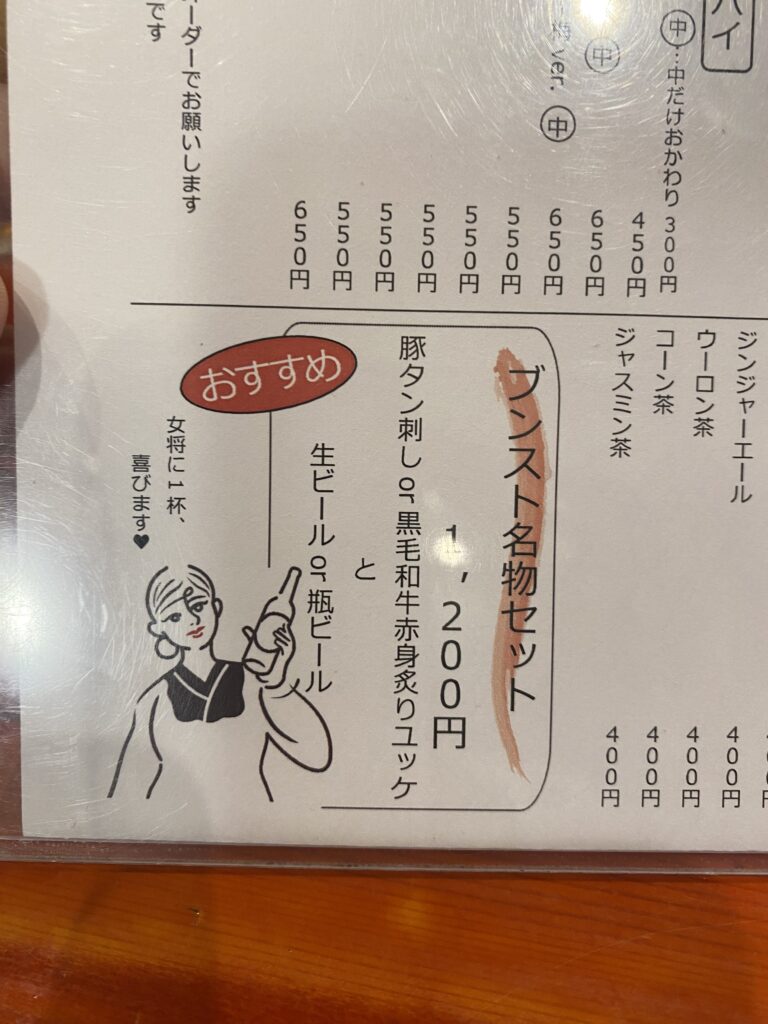 ハイ
中…中だけおかわり 300円
450円
中
650円
ver. 中
650円
550円
550円
550円
550円
550円
650円
オーダーでお願いします
です
ジンジャーエール
400円
ウーロン茶
400円
コーン茶
400円
ジャスミン茶
400円
ブンスト名物セット
1,200円
豚タン刺し or 黒毛和牛赤身炙りユッケ
と
生ビール or 瓶ビール
おすすめ
女将に1杯、
喜びます♥